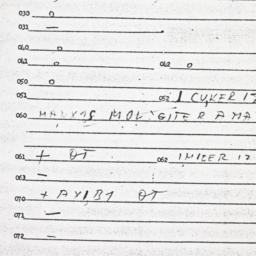 030 0
031 —
040 0
041 0 042 0
050 0
051 052 1 CUKER 17
060 MOL GITER A MA
061 + OT 062 1 MILER 17
063 —
070 + AXIB1 OT
071 —
072 —